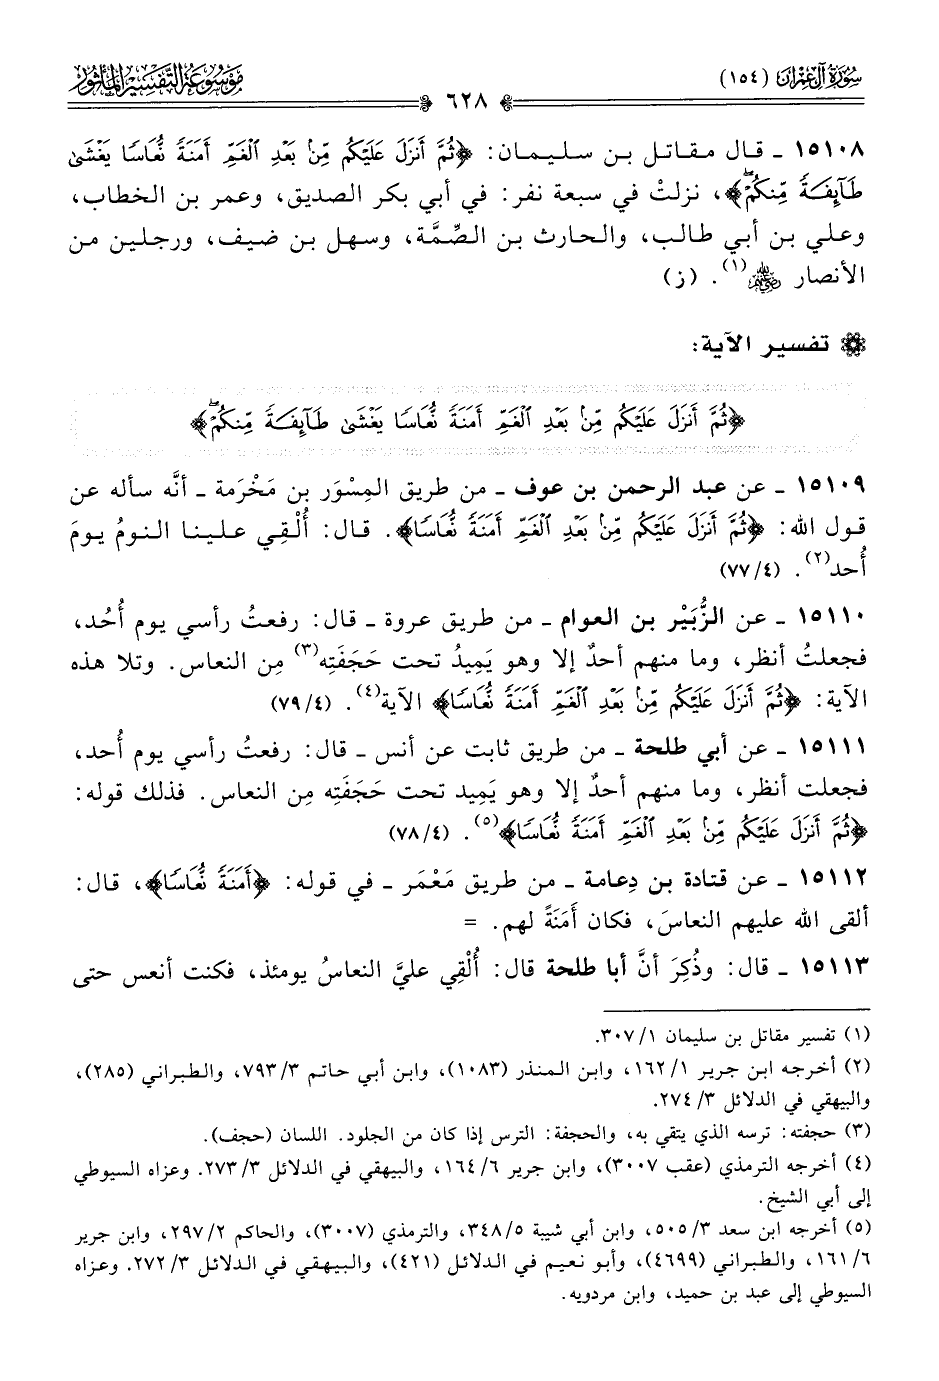 سورة آل عمران (١٥٤)
٦٢٨
موسوعة التفسير المأثور
١٥١٠٨ ـ قال مقاتل بن سليمان: ﴿ثُمَّ أَنزَلَ عَلَيْكُم مِّنۢ بَعْدِ ٱلْغَمِّ أَمَنَةً نُّعَاسًا يَغْشَىٰ
طَآئِفَةً مِّنكُمْ﴾، نزلتْ في سبعة نفر: في أبي بكر الصديق، وعمر بن الخطاب،
وعلي بن أبي طالب، والحارث بن الصِّمَّة، وسهل بن ضيف، ورجلين من
الأنصار ﵃(١). (ز)
تفسير الآية:
﴿ثُمَّ أَنزَلَ عَلَيْكُم مِّنۢ بَعْدِ ٱلْغَمِّ أَمَنَةً نُّعَاسًا يَغْشَىٰ طَآئِفَةً مِّنكُمْ ۖ﴾
١٥١٠٩ ـ عن عبد الرحمن بن عوف ـ من طريق المِسْوَر بن مَخْرَمة ـ أنَّه سأله عن
قول الله: ﴿ثُمَّ أَنزَلَ عَلَيْكُم مِّنۢ بَعْدِ ٱلْغَمِّ أَمَنَةً نُّعَاسًا﴾. قال: أُلْقِي علينا النومُ يومَ
أُحد(٢). (٤/ ٧٧)
١٥١١٠ ـ عن الزُّبَيْر بن العوام ـ من طريق عروة ـ قال: رفعتُ رأسي يوم أُحُد،
فجعلتُ أنظر، وما منهم أحدٌ إلا وهو يَمِيدُ تحت حَجَفَتِه(٣) مِن النعاس. وتلا هذه
الآية: ﴿ثُمَّ أَنزَلَ عَلَيْكُم مِّنۢ بَعْدِ ٱلْغَمِّ أَمَنَةً نُّعَاسًا﴾ الآية(٤). (٤/ ٧٩)
١٥١١١ ـ عن أبي طلحة ـ من طريق ثابت عن أنس ـ قال: رفعتُ رأسي يوم أُحد،
فجعلت أنظر، وما منهم أحدٌ إلا وهو يَمِيد تحت حَجَفَتِه مِن النعاس. فذلك قوله:
﴿ثُمَّ أَنزَلَ عَلَيْكُم مِّنۢ بَعْدِ ٱلْغَمِّ أَمَنَةً نُّعَاسًا﴾(٥). (٤/ ٧٨)
١٥١١٢ ـ عن قتادة بن دِعامة ـ من طريق مَعْمَر ـ في قوله: ﴿أَمَنَةً نُّعَاسًا﴾، قال:
ألقى الله عليهم النعاسَ، فكان أَمَنَةً لهم. =
١٥١١٣ ـ قال: وذُكِرَ أنَّ أبا طلحة قال: أُلْقِي عليَّ النعاسُ يومئذ، فكنت أنعس حتى
(١) تفسير مقاتل بن سليمان ١/ ٣٠٧.
(٢) أخرجه ابن جرير ١/ ١٦٢، وابن المنذر (١٠٨٣)، وابن أبي حاتم ٣/ ٧٩٣، والطبراني (٢٨٥)،
والبيهقي في الدلائل ٣/ ٢٧٤.
(٣) حجفته: ترسه الذي يتقي به، والحجفة: الترس إذا كان من الجلود. اللسان (حجف).
(٤) أخرجه الترمذي (عقب ٣٠٠٧)، وابن جرير ٦/ ١٦٤، والبيهقي في الدلائل ٣/ ٢٧٣. وعزاه السيوطي
إلى أبي الشيخ.
(٥) أخرجه ابن سعد ٣/ ٥٠٥، وابن أبي شيبة ٥/ ٣٤٨، والترمذي (٣٠٠٧)، والحاكم ٢/ ٢٩٧، وابن جرير
٦/ ١٦١، والطبراني (٤٦٩٩)، وأبو نعيم في الدلائل (٤٢١)، والبيهقي في الدلائل ٣/ ٢٧٢. وعزاه
السيوطي إلى عبد بن حميد، وابن مردويه.